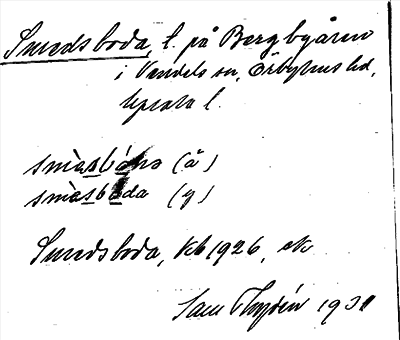 Smedsboda, t. på Bergbyåsen
i Vendels sn, Örbyhus hd,
Upsala l.
smὰsbóna (ä)
smὰsbóda (y)
Smedsboda, kb 1926, etc
Sam Thydén 1931